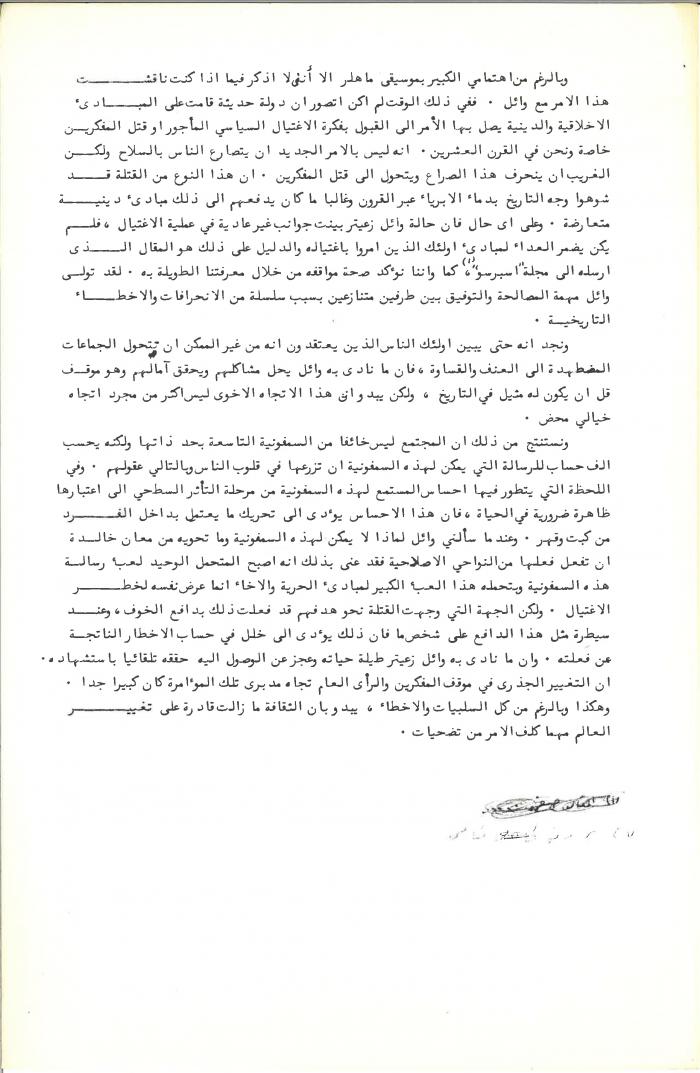 وبالرغم من اهتمامي الكبير بموسيقى ماهلر الا أنفي لا اذكر فيما اذا كنت ناقشت
هذا الامر مع وائل ٠ ففي ذلك الوقت لم اكن اتصور ان دولة حديثة قامت على المبادئ
الاخلاقية والدينية يصل بها الأمر الى القبول بفكرة الاغتيال السياسي المأجور او قتل المفكرين
خاصة ونحن في القرن العشرين ٠ انه ليس بالامر الجديد ان يتصارع الناس بالسلاح ولكن
الغريب ان ينحرف هذا الصراع ويتحول الى قتل المفكرين ٠ ان هذا النوع من القتلة قد
شوهوا وجه التاريخ بدماء الابرياء عبر القرون وغالبا ما كان يدفعهم الى ذلك مبادئ دينية
متعارضة ٠ وعلى اى حال فان حالة وائل زعيتر بينت جوانب غير عادية في عملية الاغتيال ، فلم
يكن يضمر العداء لمبادئ اولئك الذين امروا باغتياله والدليل على ذلك هو المقال الذى
ارسله الى مجلة "اسبرسو" (١)، كما واننا نوٴكد صحة مواقفه من خلال معرفتنا الطويلة به ٠ لقد تولى
وائل مهمة المصالحة والتوفيق بين طرفين متنازعين بسبب سلسلة من الانحرافات والاخطاء
التاريخية ٠
ونجد انه حتى يبين اولئك الناس الذين يعتقدون انه من غير الممكن ان تتحول الجماعات
المضطهدة الى العنف والقساوة ، فان ما نادى به وائل يحل مشاكلهم ويحقق آمالهم وهو موقف
قل ان يكون له مثيل في التاريخ ، ولكن يبدو ان هذا الاتجاه الاخوى ليس اكثر من مجرد اتجاه
خيالي محض ٠
ونستنتج من ذلك ان المجتمع ليس خائفا من السمفونية التاسعة بحد ذاتها ولكنه يحسب
الف حساب للرسالة التي يمكن لهذه السمفونية ان تزرعها في قلوب الناس وبالتالي عقولهم ٠ وفي
اللحظة التي يتطور فيها احساس المستمع لهذه السمفونية من مرحلة التأثر السطحي الى اعتبارها
ظاهرة ضرورية في الحياة ، فان هذا الاحساس يوٴدى الى تحريك ما يعتمل بداخل الفرد
من كبت وقهر ٠ وعندما سألني وائل لماذا لا يمكن لهذه السمفونية وما تحويه من معان خالدة
ان تفعل فعلها من النواحي الاصلاحية فقد عنى بذلك انه اصبح المتحمل الوحيد لعبء رسالة
هذه السمفونية وبتحمله هذا العبء الكبير لمبادئ الحرية والاخاء انما عرض نفسه لخطر
الاغتيال ٠ ولكن الجهة التي وجهت القتلة نحو هدفهم قد فعلت ذلك بدافع الخوف ، وعند
سيطرة مثل هذا الدافع على شخص ما فان ذلك يوٴدى الى خلل في حساب الاخطار الناتجة
عن فعلته ٠ وان ما نادى به وائل زعيتر طيلة حياته وعجز عن الوصول اليه حققه تلقائيا باستشهاده ٠
ان التغيير الجذرى في موقف المفكرين والرأى العام تجاه مدبرى تلك الموٴامرة كان كبيرا جدا ٠
وهكذا وبالرغم من كل السلبيات والاخطاء ، يبدو بان الثقافة ما زالت قادرة على تغيير
العالم مهما كلف الامر من تضحيات ٠